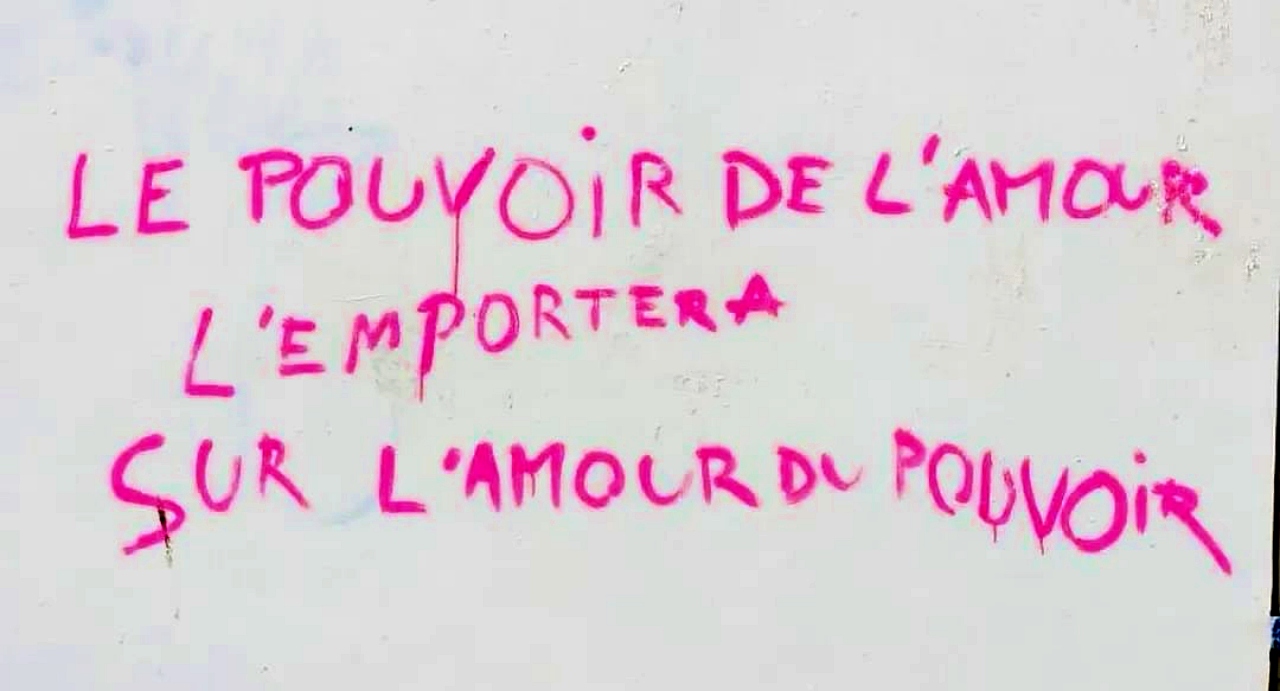 LE POUVOiR DE L'AMOUR
L'EMPORTERA
SUR L'AMOUR DU POUVOiR